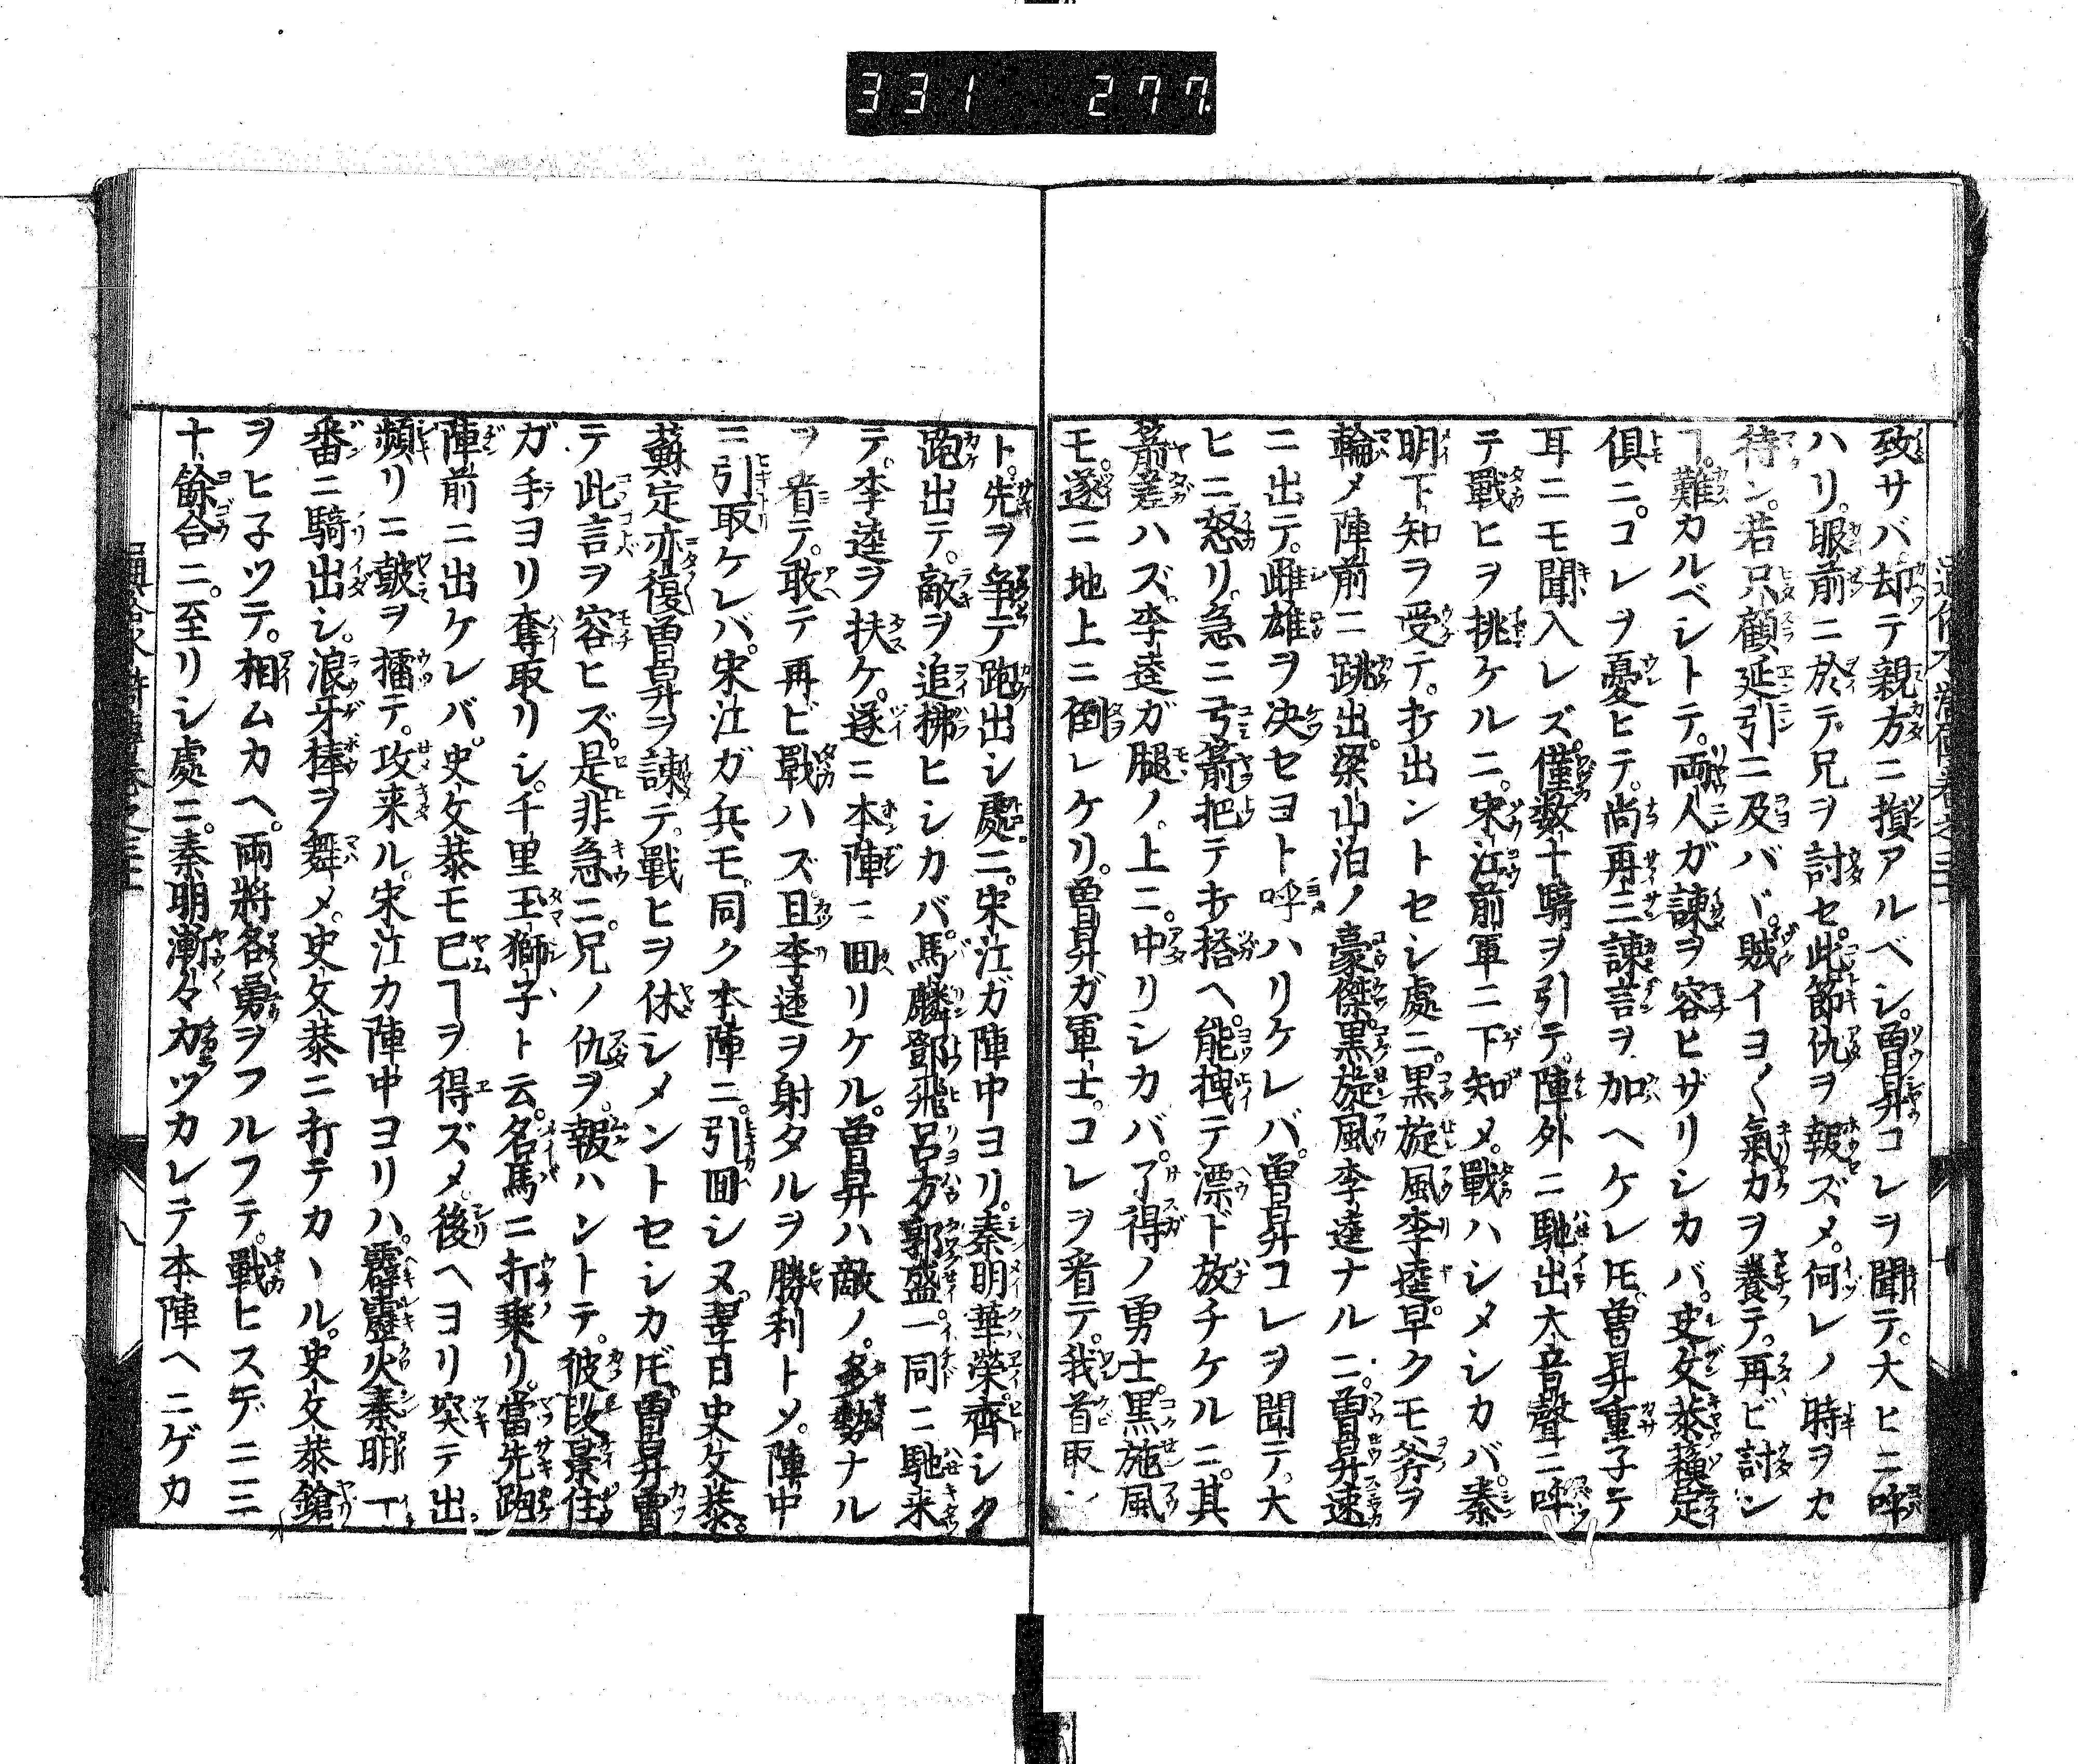 331 277
致サバ却テ親方ニ損アルベシ。曽昇コレヲ聞テ。大ヒニ呼
ハリ。眼前ニ於テ兄ヲ討セ。此節仇ヲ報ズメ。何レノ時ヲカ
待ン。若只顧延引ニ及バヾ。賊イヨ〱氣力ヲ養テ。再ビ討ン
ヿ。難カルベシトテ。両人ガ諫ヲ容ヒザリシカバ。史文恭蘓定
倶ニ。コレヲ憂ヒテ。尚再三諫言ヲ加ヘケレ𪜈。曽昇重子テ
耳ニモ聞入レズ。僅数十騎ヲ引テ。陣外ニ馳出大音聲ニ呼
テ戰ヒヲ挑ケルニ。宋江前軍ニ下知メ。戰ハシメシカバ。秦
明下知ヲ受テ。打出ントセシ處ニ。黒旋風李逵。早クモ斧ヲ
輪メ陣前ニ跳出。梁山泊ノ豪傑黒旋風李逵ナルニ。曽昇速
ニ出テ。雌雄ヲ决セヨト呼ハリケレバ。曽昇コレヲ聞テ。大
ヒニ怒リ。急ニ弓箭把テ打搭ヘ。能拽テ漂ド放チケルニ。其
箭差ハズ。李逵ガ腿ノ。上ニ。中リシカバ。了得ノ勇士。黒旋風
モ。遂ニ地上ニ倒レケリ。曽昇ガ軍士。コレヲ看テ。我首取ン
ト。先ヲ争テ跑出シ處ニ。宋江ガ陣中ヨリ。秦明華榮齊シク
跑出テ。敵ヲ追拂ヒシカバ。馬麟鄧飛呂方郭盛一同ニ馳来
テ。李逵ヲ扶ケ。遂ニ本陣ニ回リケル。曽昇ハ敵ノ。多勢ナル
ヲ看テ。敢テ再ビ戰ハズ且李逵ヲ射タルヲ勝利トメ。陣中
ニ引取ケレバ。宋江ガ兵モ。同ク本陣ニ。引回シヌ。翌日史文恭。
蘇定亦復曽昇ヲ諫テ。戰ヒヲ休シメントセシカ𪜈。曽昇曽
テ此言ヲ容ヒズ。是非急ニ。兄ノ仇ヲ。報ハントテ。彼段景住
ガ手ヨリ奪取リシ。千里玉獅子ト云。名馬ニ打乗リ。當先跑
陣前ニ出ケレバ。史文恭モ已ヿヲ得ズメ。後ヘヨリ突テ出
頻リニ皷ヲ擂テ。攻来ル。宋江カ陣中ヨリハ。霹靂火秦明一
番ニ騎出シ。浪牙棒ヲ舞メ。史文恭ニ打テカヽル。史文恭鎗
ヲヒ子ツテ。相ムカヘ。両將各勇ヲフルフテ。戰ヒステニ三
十餘合ニ。至リシ處ニ。秦明漸々力ツカレテ本陣ヘニゲカ